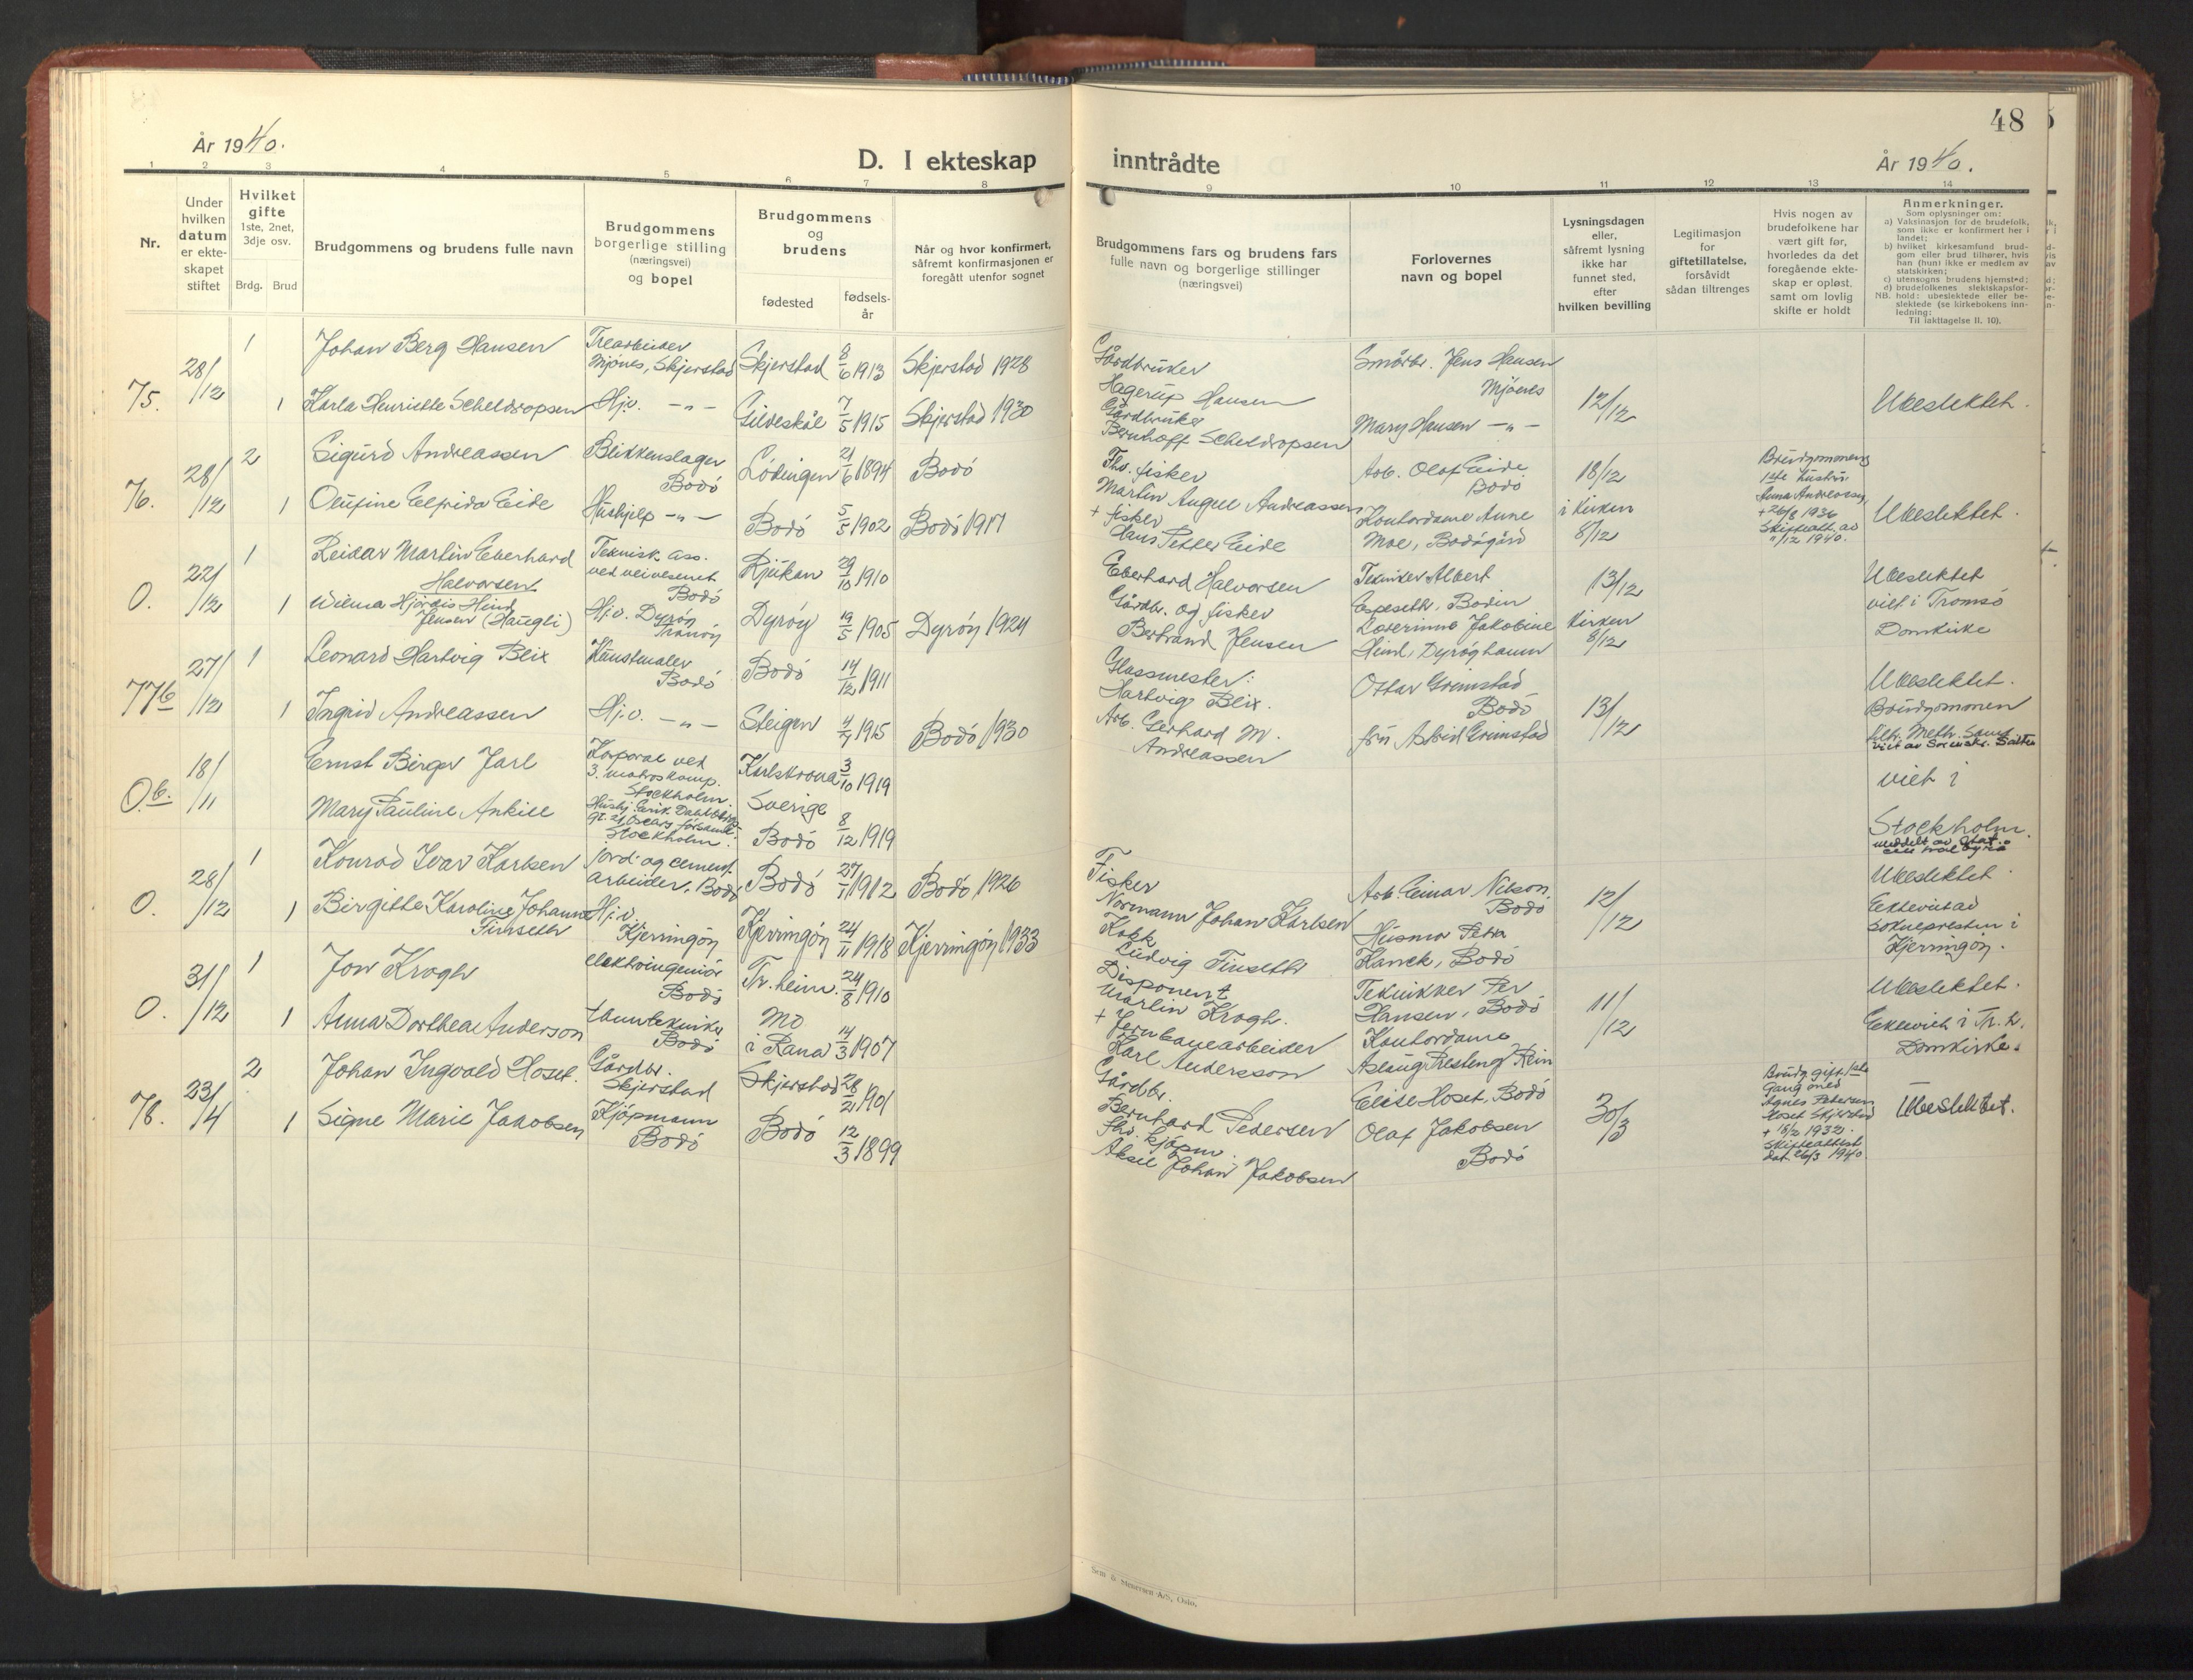 År 1940.
D. I ekteskap
1 2 3 4 5 6 7 8
Nr.
Under hvilken datum er ekte-skapet stiftet
Hvilket gifte 1ste, 2net, 3dje osv.
Brdg. Brud
Brudgommens og brudens fulle navn
Brudgommens borgerlige stilling (næringsvei) og bopel
Brudgommens og brudens
fødested
fødsels-år
Når og hvor konfirmert, såfremt konfirmasjonen er foregått utenfor sognet
75. 28/12
1 Johan Berg Hansen Trearbeider Mjønes, Skjerstad Skjerstad 8/6 1913 Skjerstad 1928
1 Karla Henriette Scheldropsen Hj.v. -"- Gildeskål 7/5 1915 Skjerstad 1930
76. 28/12
2 Sigurd Andreassen Blikkenslager Bodö Lödingen 21/6 1894 Bodö
1 Olufine Elfrida Eide Hushjelp -"- Bodö 5/5 1902 Bodö 1917
0. 22/12
1 Reidar Martin Eberhard Halvorsen Teknisk ass. ved veivesenet Bodö Rjukan 29/10 1910
1 Wilma Hjördis Hind Jensen (Haugli) Hj.v. Dyröy Tranöy Dyröy 19/5 1905 Dyröy 1924
77b 27/12
1 Leonard Hartvig Blix Kunstmaler Bodö Bodö 14/12 1911
1 Ingrid Andreassen Hj.v. -"- Steigen 4/7 1915 Bodö 1930
0.b. 18/11
Ernst Birger Jarl Korporal ved 3. matroskomp. Stockholm. Karlskrona Sverige 3/10 1919
Mary Pauline Ankile Stockholm. Bodö 8/12 1919
0. 28/12
1 Konrad Ivar Karlsen Jord- og cement-arbeider, Bodö Bodö 27/11 1912 Bodö 1926
1 Birgitte Karoline Johanne Finseth Hj.v. Kjerringöy Kjerringöy 24/11 1918 Kjerringöy 1933
0. 31/12
1 Jon Krogh elektroingeniör Bodö Tr.heim. 24/8 1910
1 Anna Dorthea Anderson tanntekniker Bodö Mo i Rana 14/3 1907
78. 23/4
2 Johan Ingvald Hoset. Gårdbr. Skjerstad Skjerstad 28/2 1901
1 Signe Marie Jakobsen Kjöpmann Bodö Bodö 12/3 1899
48
inntrådte
År 1940.
9 10 11 12 13 14
Brudgommens fars og brudens fars fulle navn og borgerlige stillinger (næringsvei)
Forlovernes navn og bopel
Lysningsdagen eller, såfremt lysning ikke har funnet sted, efter hvilken bevilling
Legitimasjon for giftetillatelse, forsåvidt sådan tiltrenges
Hvis nogen av brudefolkene har vært gift før, hvorledes da det foregående ekte-skap er opløst, samt om lovlig skifte er holdt
Anmerkninger.
Som oplysninger om:
a) Vaksinasjon for de brudefolk, som ikke er konfirmert her i landet;
b) hvilket kirkesamfund brud-gom eller brud tilhører, hvis han (hun) ikke er medlem av statskirken;
c) utensogns brudens hjemsted;
d) brudefolkenes slektskapsfor-
NB. hold: ubeslektede eller be-slektede (se kirkebokens inn-ledning:
Til iakttagelse II. 10).
Gårdbruker Hagerup Hansen Småbr. Jens Hansen Mjönes 12/12 Ubeslektet.
Gårdbruker Bernhoff Scheldropsen Mary Hansen -"-
Fhv. fisker Martin August Andreassen Arb. Olaf Eide Bodö 18/12 Brudgommens 1ste hustru Anna Andreassen + 26/8 1936 Skifteatt. av 11/12 1940. Ubeslektet.
+ fisker Hans Petter Eide Kontordame Anne Moe, Bodögård i Kirken 8/12
Eberhard Halvorsen Tekniker Albert Espeseth, Bodin 13/12 Ubeslektet viet i Tromsö Domkirke
Gårdbr. og fisker Bertrand Jensen Lærerinne Jakobine Hind, Dyröyhamn Kirken 8/12
Glassmester: Hartvig Blix. Ottar Grimstad Bodö 13/12 Ubeslektet. Brudgommen viet av Sorenskr. Salten
Arb. Gerhard M. Andreassen fru Astrid Grimstad
viet i Stockholm.
Fisker Normann Johan Karlsen Arb. Einar Nilsen, Bodö 12/12 Ubeslektet. Ekteviet av soknepresten i Kjerringöy.
Kokk Ludvig Finseth Husmor Petra Hanek, Bodö
Disponent Martin Krogh. Tekniker Per Hansen, Bodö 11/12 Ubeslektet. Ekteviet i Tr.h. Domkirke.
+ Jernbanearbeider Karl Andersson Kontordame Aslaug Presteng Rein
Gårdbr. Bernhard Pedersen Elise Hoset, Bodö 30/3 Brudg. gift 1ste Gang med Agnes Petersen Hoset Skjerstad + 15/2 1932. Skifteattest dat. 26/3 1940 Ubeslektet.
Fhv. kjöpm. Aksel Johan Jakobsen Olaf Jakobsen Bodö
Sem & Stenersen A/S, Oslo.